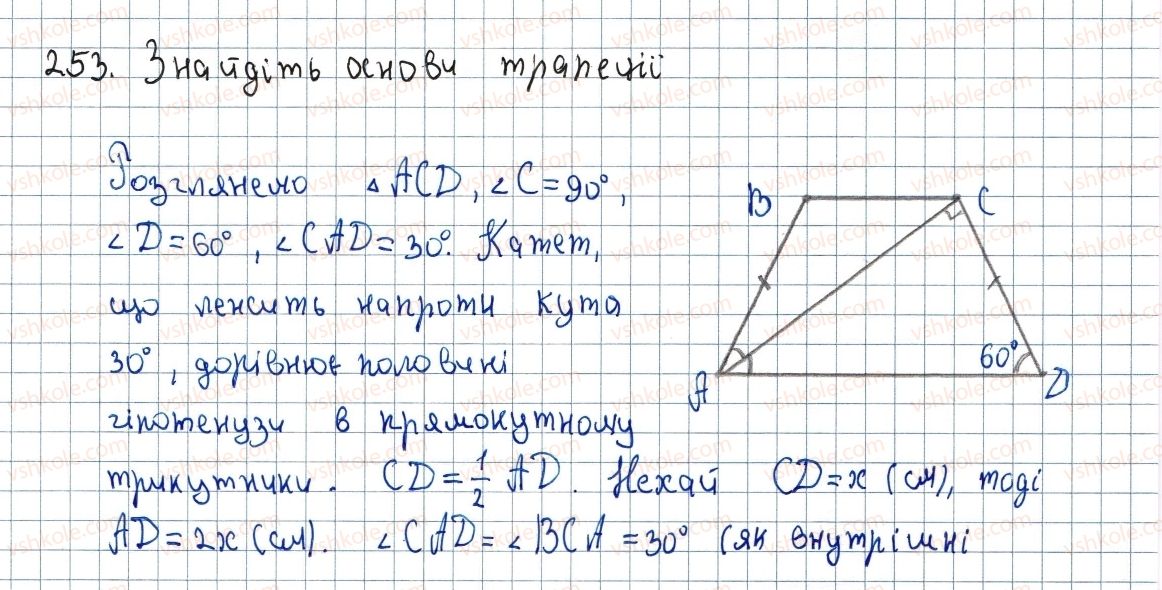 253. Знайдіть основи трапеції
Розглянемо ▵ ACD, ∠C=90°,
∠D=60°, ∠CAD=30°. Катет,
що лежить напроти кута
30°, дорівнює половині
гіпотенузи в прямокутному
трикутники. CD=1/2 AD. Нехай CD=x (см), тоді
AD=2x (см). ∠CAD=∠BCA=30° (як внутрішні
B C
60°
A D
vshkole.com